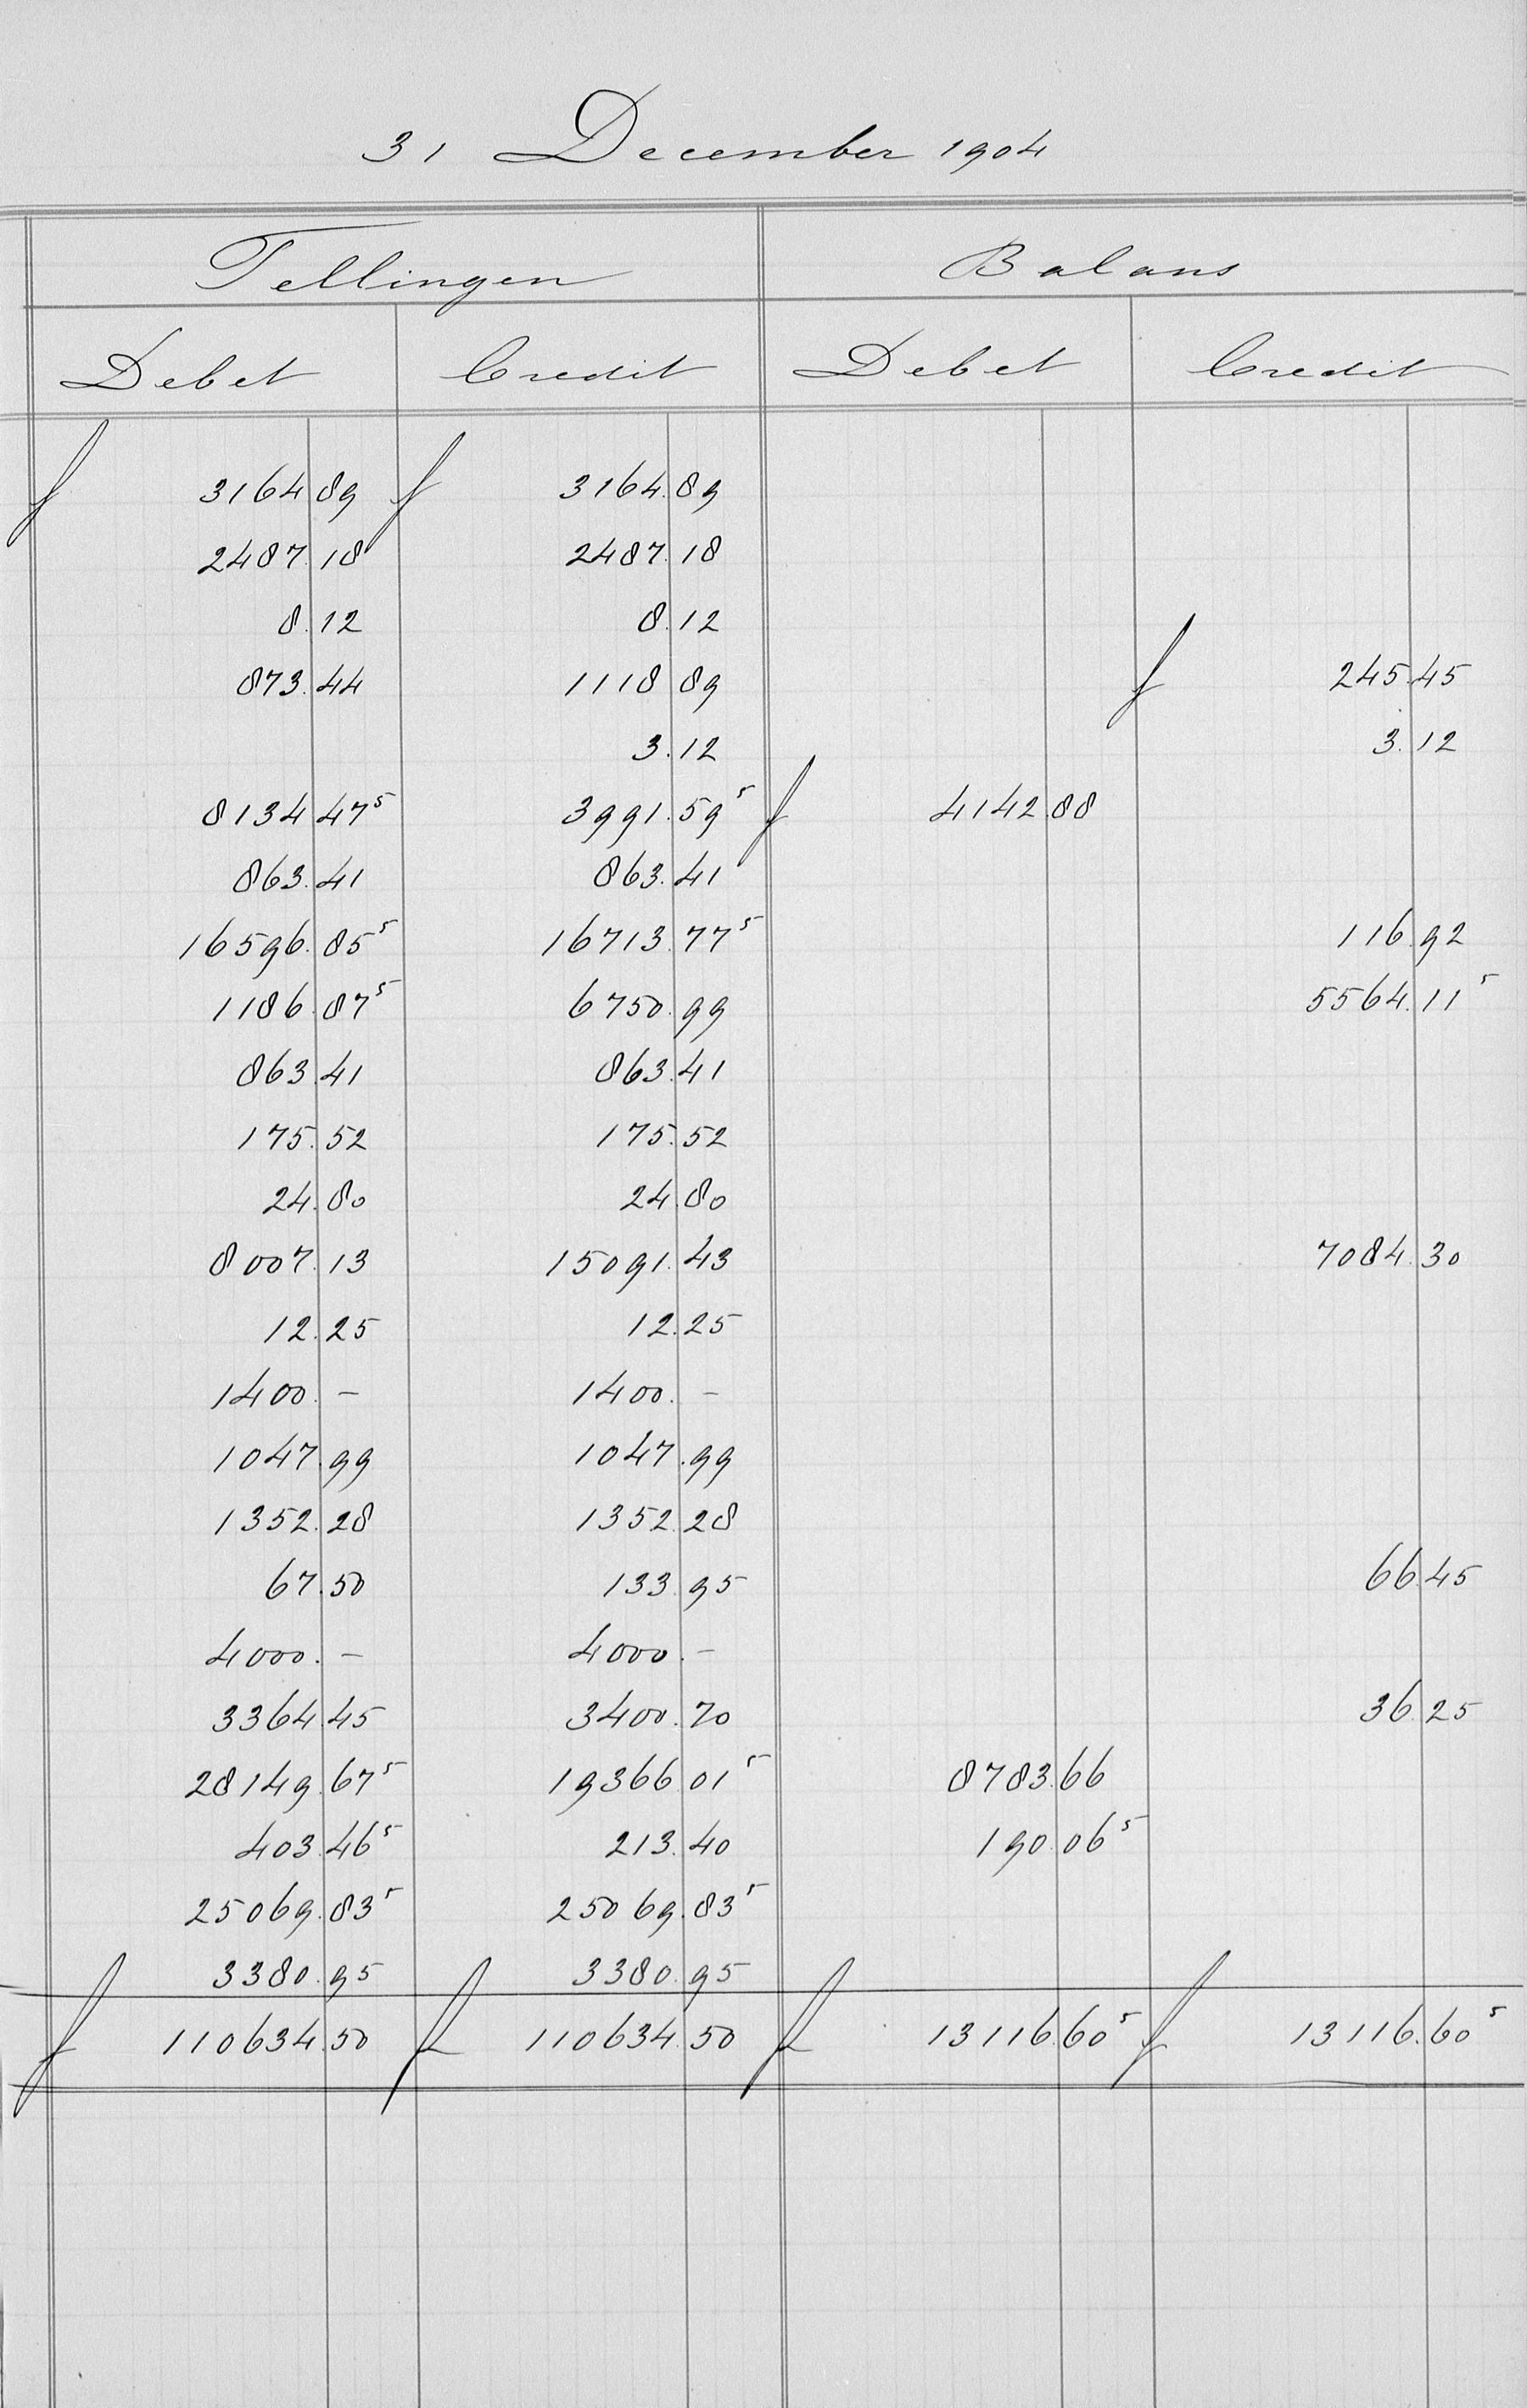 31 December 1904
Tellingen Balans
Debet Credit Debet Credit
f 3164 89 f 3164.89
2487.18 2487.18
8.12 8.12
873.44 1118 89 f 245.45
3.12 3.12
8134 47⁵ 3991.59⁵ f 4142.88
863.41 863.41
16596.85⁵ 16713.77⁵ 116.92
1186.87⁵ 6750.99 5564.11⁵
863.41 863.41
175.52 175.52
24.80 24.80
8007.13 15091.43 7084.30
12.25 12.25
1400.- 1400.-
1047.99 1047.99
1352.28 1352.28
67.50 133.95 66.45
4000.- 4000.-
3364 45 3400.70 36.25
28149.67⁵ 19366.01⁵ 8783.66
403.46⁵ 213.40 190.06⁵
25069.83⁵ 25069.83⁵
3380.95 3380.95
f 110634.50 f 110634.50 f 13116.60⁵ f 13116.60⁵